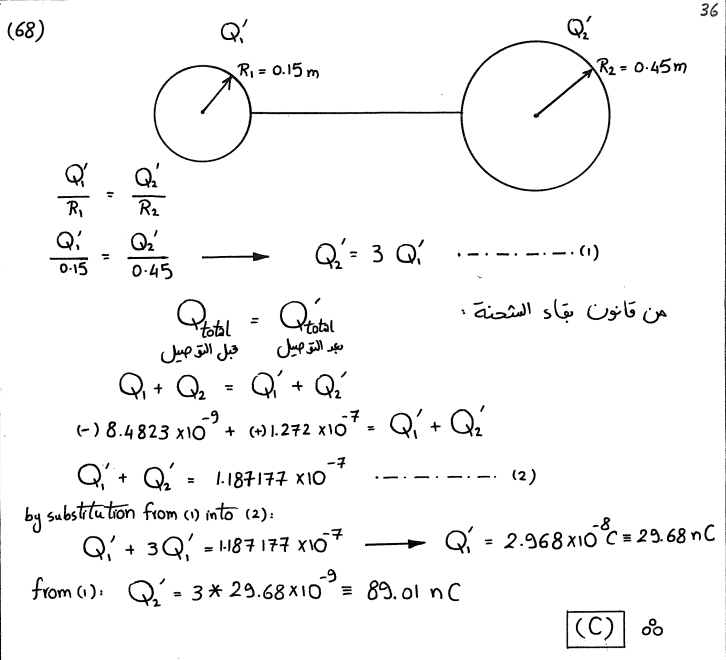 36
(68)
Q₁′
Q₂′
R₁ = 0.15 m
R₂ = 0.45 m
Q₁′/R₁ = Q₂′/R₂
Q₁′/0.15 = Q₂′/0.45 ⟶ Q₂′ = 3 Q₁′ ·—·—·—·—· (1)
من قانون بقاء الشحنة :
Q total = Q′ total
قبل التوصيل بعد التوصيل
Q₁ + Q₂ = Q₁′ + Q₂′
(-) 8.4823 ×10⁻⁹ + (+) 1.272 ×10⁻⁷ = Q₁′ + Q₂′
Q₁′ + Q₂′ = 1.187177 ×10⁻⁷ ·—·—·—·—· (2)
by substitution from (1) into (2):
Q₁′ + 3Q₁′ = 1.187177 ×10⁻⁷ ⟶ Q₁′ = 2.968×10⁻⁸ C ≡ 29.68 nC
from (1): Q₂′ = 3 * 29.68×10⁻⁹ ≡ 89.01 nC
(C)